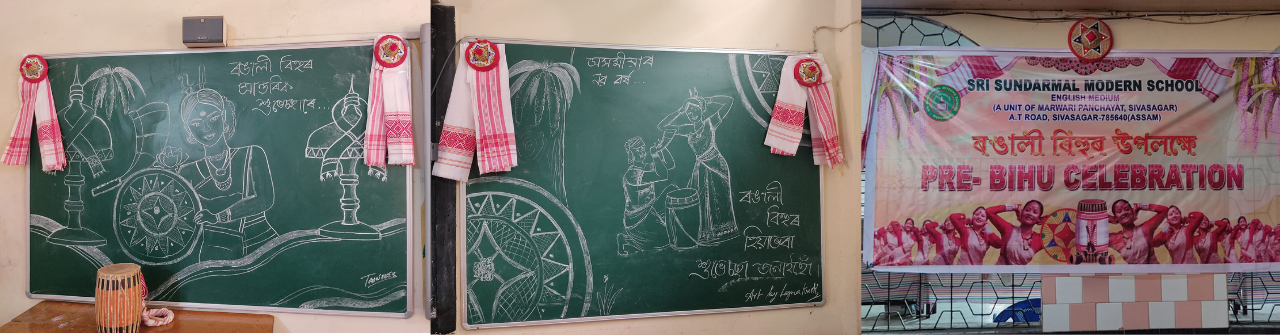 ৰঙালী বিহুৰ
আন্তৰিক
শুভেচ্ছাৰে...
TANMEE
অসমীয়াৰ
নৱ বৰ্ষ...
ৰঙালী
বিহুৰ
হিয়াভৰা
শুভেচ্ছা জনাইছোঁ।
Art by
SRI SUNDARMAL MODERN SCHOOL
ENGLISH MEDIUM
(A UNIT OF MARWARI PANCHAYAT, SIVASAGAR)
A.T ROAD, SIVASAGAR-785640(ASSAM)
ৰঙালী বিহুৰ উপলক্ষে
PRE- BIHU CELEBRATION